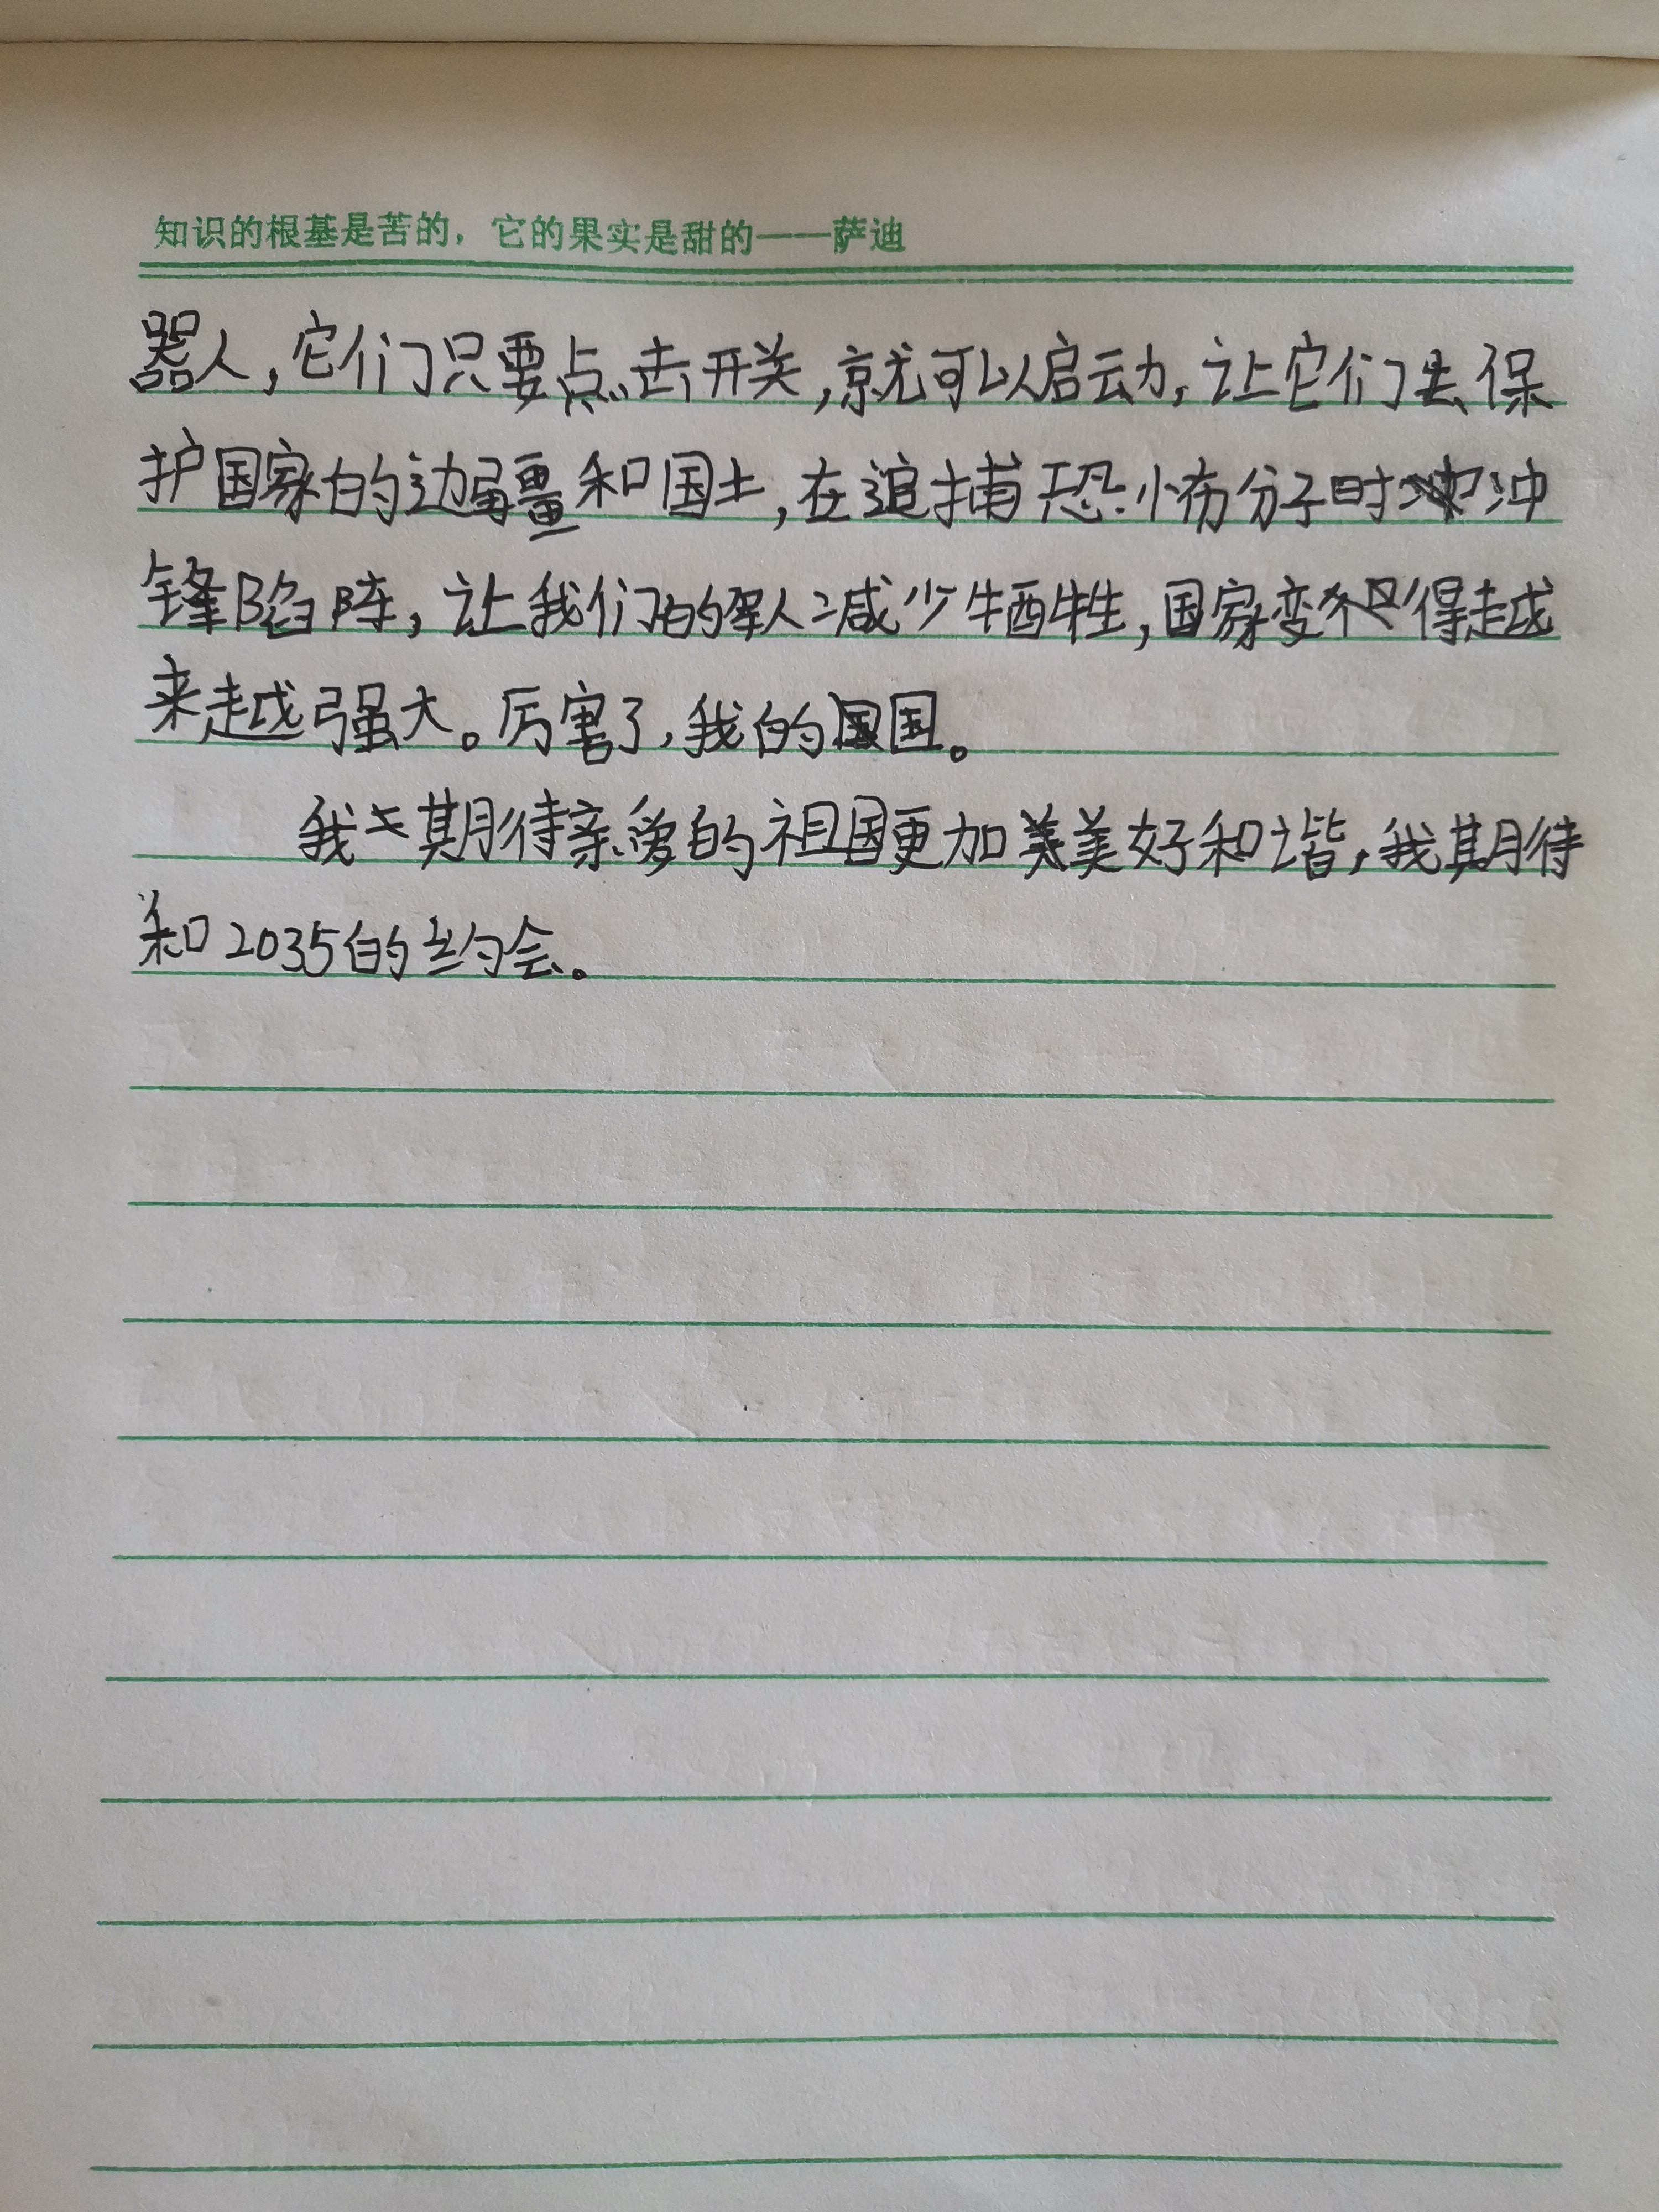 知识的根基是苦的，它的果实是甜的——萨迪
器人，它们只要点击开关，就可以启动，让它们去保
护国家的边疆和国土，在追捕恐怖分子时冲
锋陷阵，让我们的军人减少牺牲，国家变得越
来越强大。厉害了，我的国。
我期待亲爱的祖国更加美好和谐，我期待
和2035的约会。